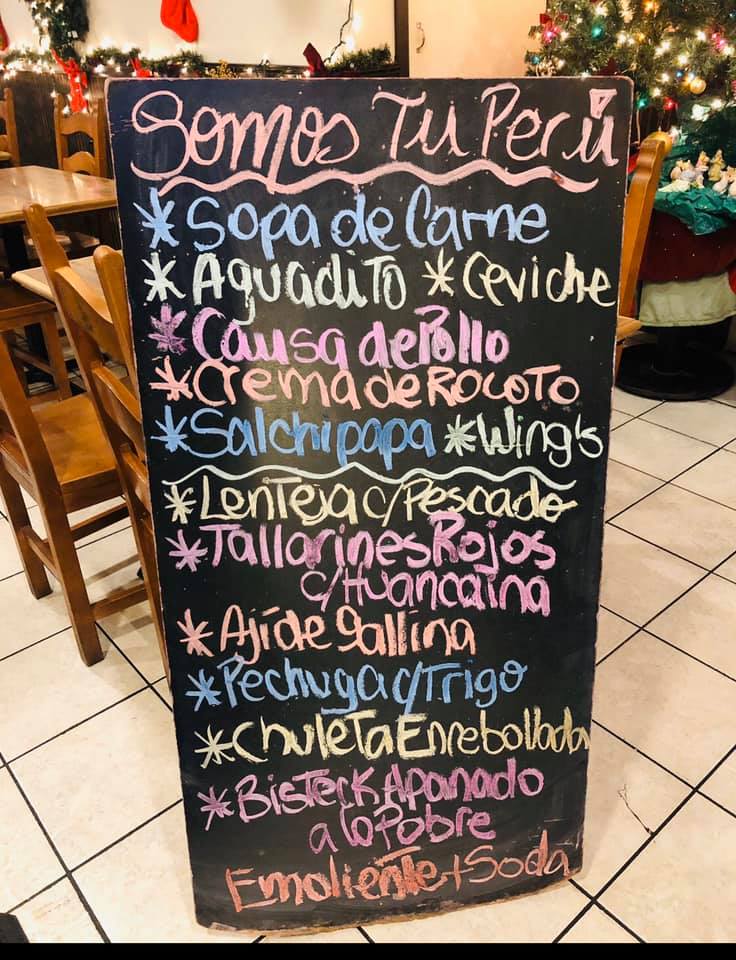 Somos Tu Perú
* Sopa de Carne
* Aguadito * Ceviche
* Causa de Pollo
* Crema de Rocoto
* Salchipapa * Wing's
* Lenteja c/Pescado
* Tallarines Rojos
c/Huancaina
* Ají de Gallina
* Pechuga c/Trigo
* Chuleta Enrebollada
* Bisteck Apanado
a lo Pobre
Emoliente + Soda